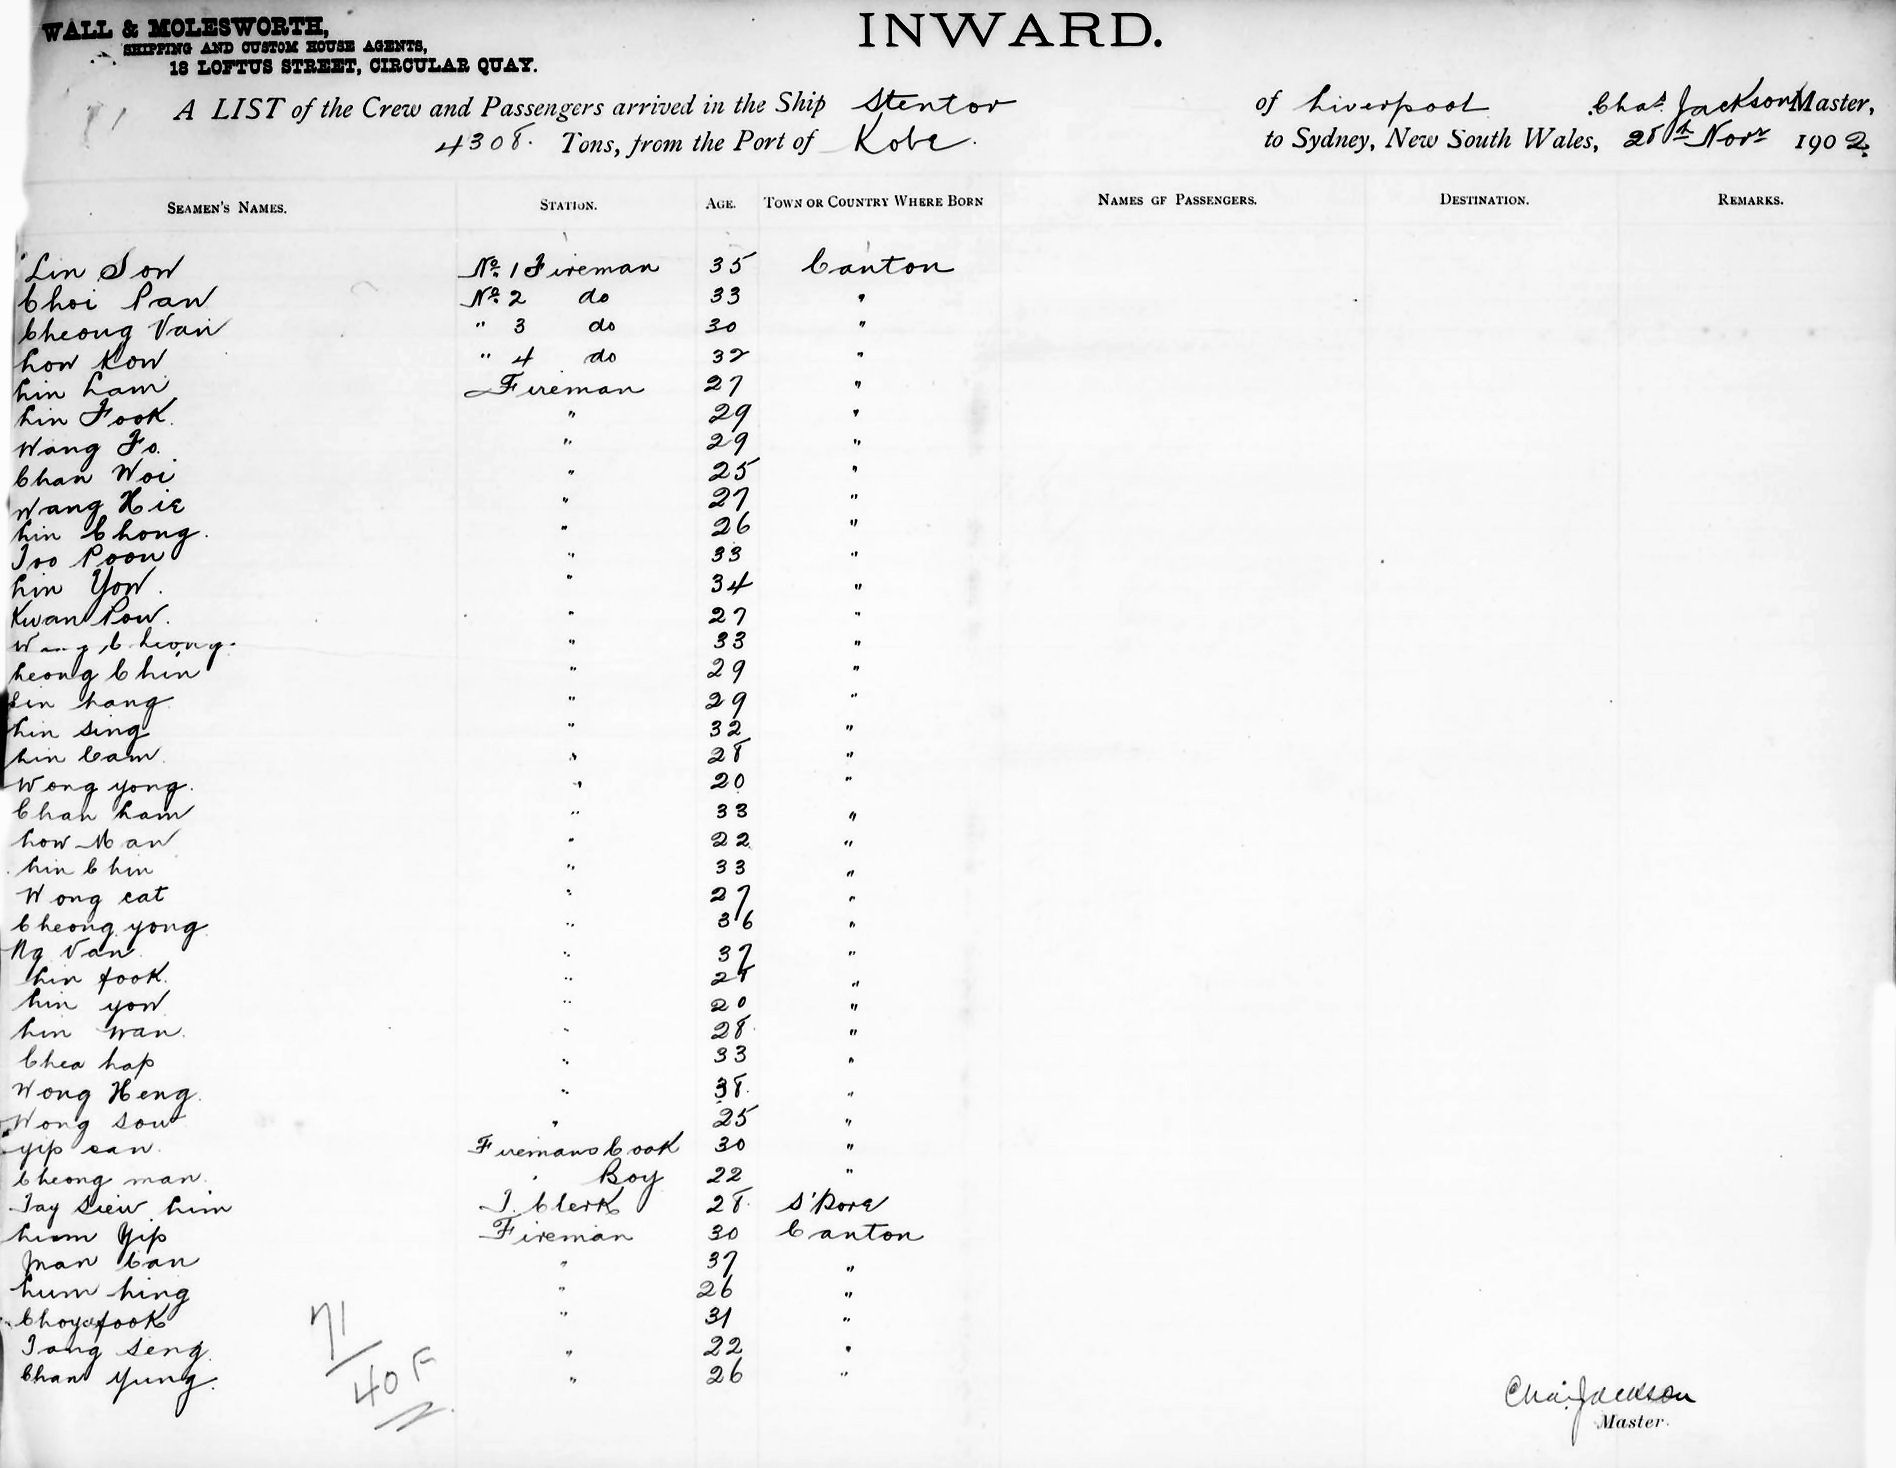 WALL & MOLESWORTH,
SHIPPING AND CUSTOM HOUSE AGENTS,
18 LOFTUS STREET, CIRCULAR QUAY.
INWARD.
A LIST of the Crew and Passengers arrived in the Ship Stentor of Liverpool Chas. Jackson Master,
4308. Tons, from the Port of Kobe. to Sydney, New South Wales, 28th Novr 1902.
SEAMEN'S NAMES. STATION. AGE. TOWN OR COUNTRY WHERE BORN NAMES OF PASSENGERS. DESTINATION. REMARKS.
Lin Sow No. 1 Fireman 35 Canton
Choi Paw No. 2 do 33 "
Cheong Van " 3 do 30 "
Low Kow " 4 do 32 "
Lin Lam Fireman 27 "
Lin Fook. " 29 "
Wang Fo. " 29 "
Chan Woi " 25 "
Wang Hie " 27 "
Lin Chong. " 26 "
Too Poon " 33 "
Lin Yow. " 34 "
Kwan Pow. " 27 "
Wang Cheong. " 33 "
Leong Chin " 29 "
Lin Lang " 29 "
Lin Sing " 32 "
Lin Cam " 28 "
Wong yong. " 20 "
Chan Lam " 33 "
Low Man " 22 "
Lin Chin " 33 "
Wong cat " 27 "
Cheong yong " 36 "
Ng Van " 37 "
Lin fook. " 28 "
Lin yow " 20 "
Lin wan. " 28 "
Chea hap " 33 "
Wong Heng. " 38. "
Wong sow " 25 "
yip san. Firemans Cook 30 "
Cheong man. " Boy 22 "
Tay Siew Lim T. Clerk 28. S'Pore
Lum Yip Fireman 30 Canton
Man Can " 37 "
Lum Ling " 26 "
Choy fook " 31 "
Tang Seng. " 22 "
Chan Yung. " 26 "
71
40 F
Chas. Jackson
Master.